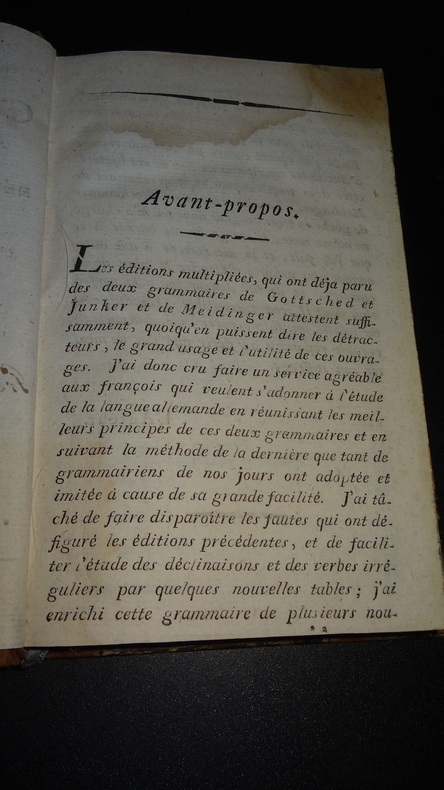 Avant-propos.
Les éditions multipliées, qui ont déja paru
des deux grammaires de Gottsched et
Junker et de Meidinger attestent suffi-
samment, quoiqu'en puissent dire les détrac-
teurs, le grand usage et l'utilité de ces ouvra-
ges. J'ai donc cru faire un service agréable
aux françois qui veulent s'adonner à l'étude
de la langue allemande en réunissant les meil-
leurs principes de ces deux grammaires et en
suivant la méthode de la dernière que tant de
grammairiens de nos jours ont adoptée et
imitée à cause de sa grande facilité. J'ai tâ-
ché de faire disparoître les fautes qui ont dé-
figuré les éditions précédentes, et de facili-
ter l'étude des déclinaisons et des verbes irré-
guliers par quelques nouvelles tables; j'ai
enrichi cette grammaire de plusieurs nou-